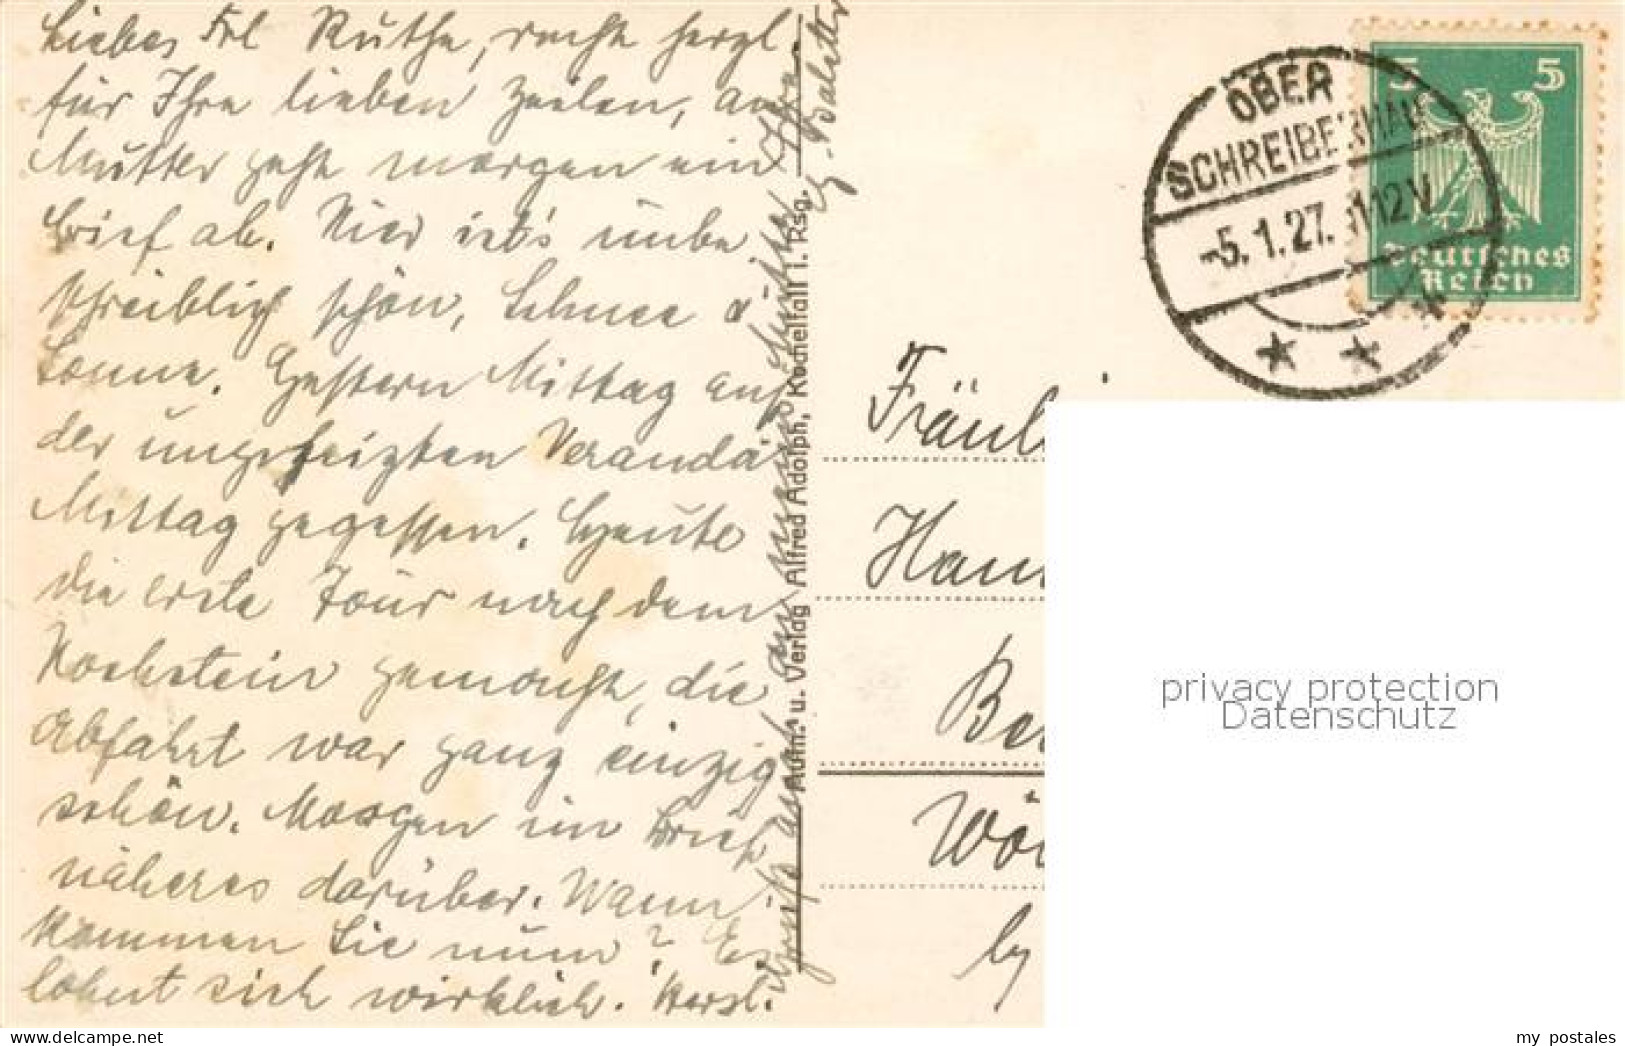 Liebes Frl Ruthe, recht herzl.
für Ihre lieben Zeilen, an
Mutter geht morgen ein
Brief ab. Hier ist's unbe-
schreiblich schön, Schnee u
Sonne. Gestern Mittag auf
der ungeheizten Veranda
Mittag gegessen. Heute
die erste Tour nach dem
Hochstein gemacht, die
Abfahrt war ganz einzig
schön. Morgen im Brief
näheres darüber. Wann
kommen Sie nun? Es
lohnt sich wirklich. Herzl.
Grüße auch an
Ihre
Aufn. u. Verlag Alfred Adolph, Kochelfall i. Rsg.
OBER
SCHREIBERHAU
-5.1.27. 1112V
5 5
Deutsches
Reich
Fräul
Han
Ber
privacy protection
Datenschutz
my postales